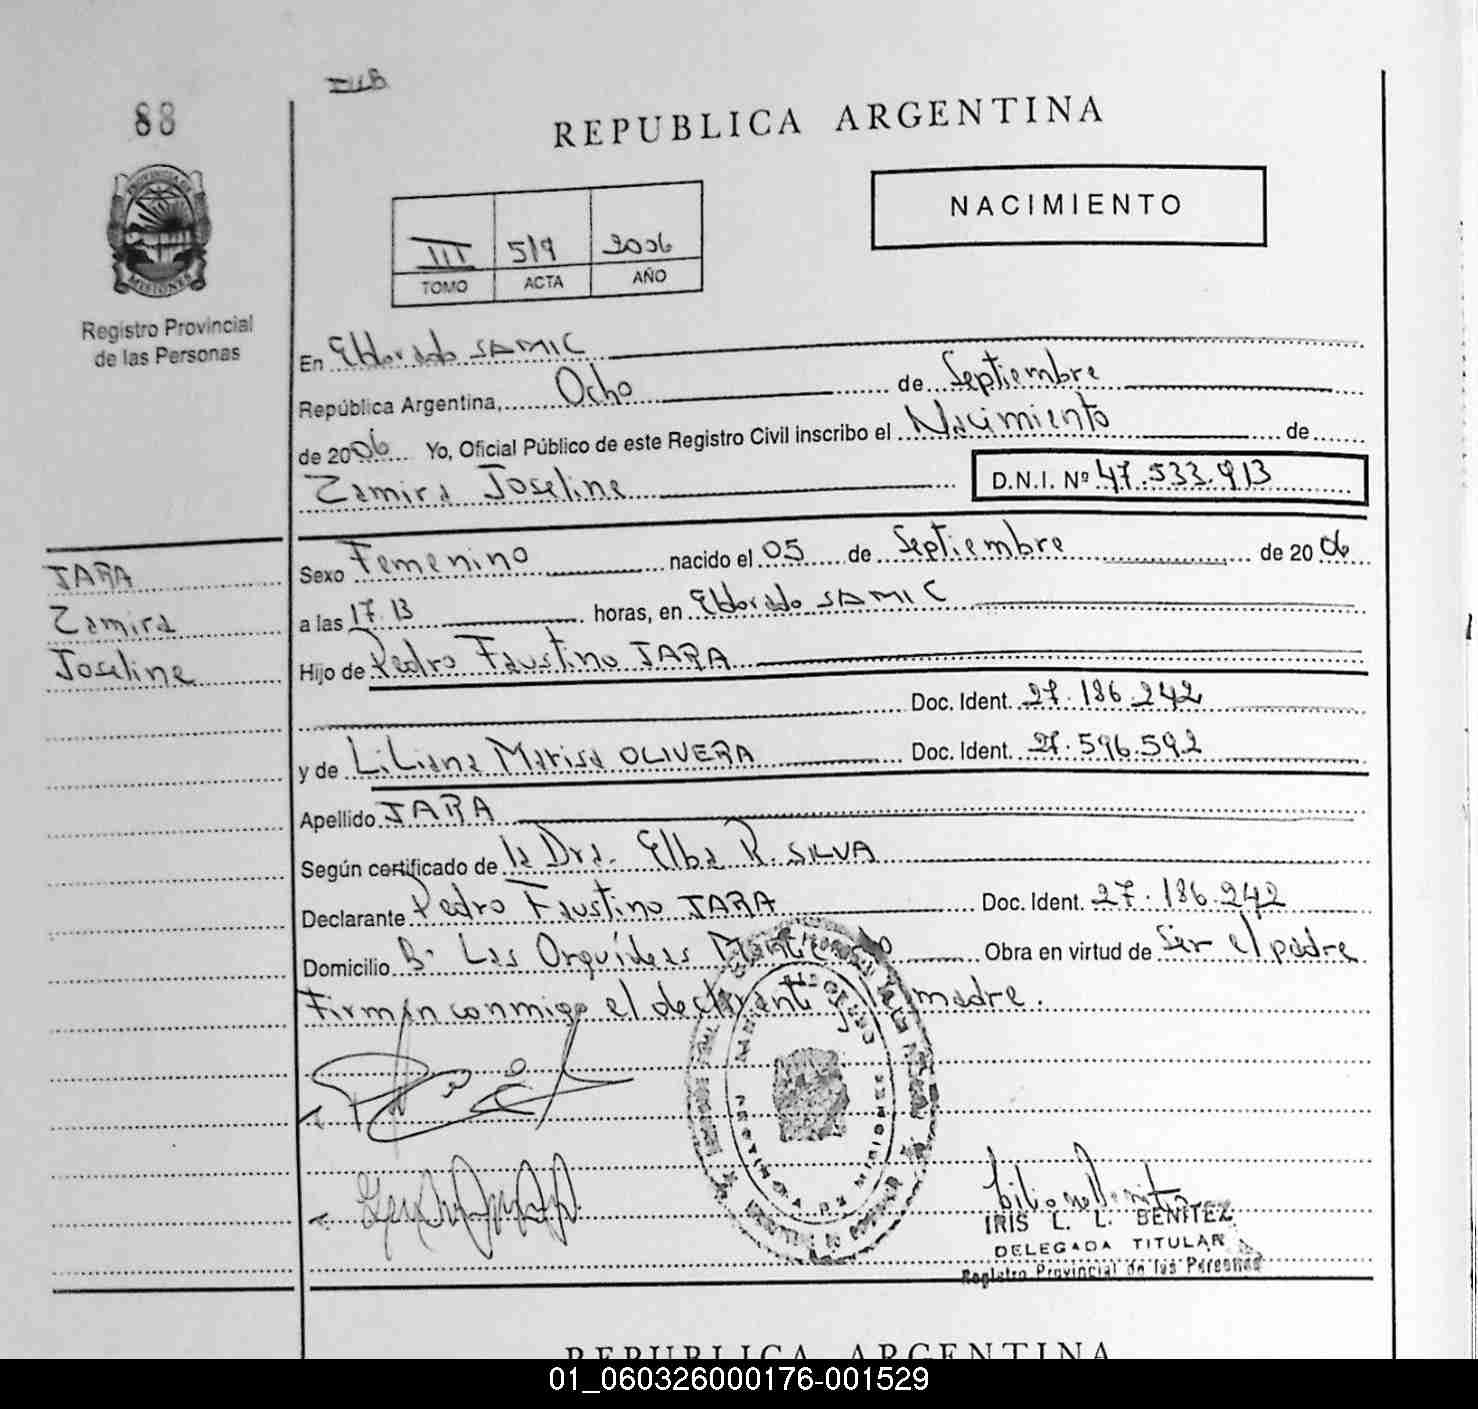 88
REPUBLICA ARGENTINA
PROVINCIA DE
MISIONES
Registro Provincial
de las Personas
NACIMIENTO
III 519 2006
TOMO ACTA AÑO
En Eldorado SAMIC
República Argentina, Ocho de Septiembre
de 2006 Yo, Oficial Público de este Registro Civil inscribo el Nacimiento de
Zamira Joseline D.N.I. Nº 47.533.913
JARA
Zamira
Joseline
Sexo Femenino nacido el 05 de Septiembre de 2006
a las 17.13 horas, en Eldorado SAMIC
Hijo de Pedro Faustino JARA
Doc. Ident. 27.186.242
y de Liliana Marisa OLIVERA Doc. Ident. 27.596.592
Apellido JARA
Según certificado de la Dra. Elba R. SILVA
Declarante Pedro Faustino JARA Doc. Ident. 27.186.242
Domicilio B· Las Orquídeas Montecarlo Obra en virtud de Ser el padre
Firman conmigo el declarante y la madre.
IRIS L. L. BENITEZ
DELEGADA TITULAR
Registro Provincial de las Personas
REPUBLICA ARGENTINA
01_060326000176-001529